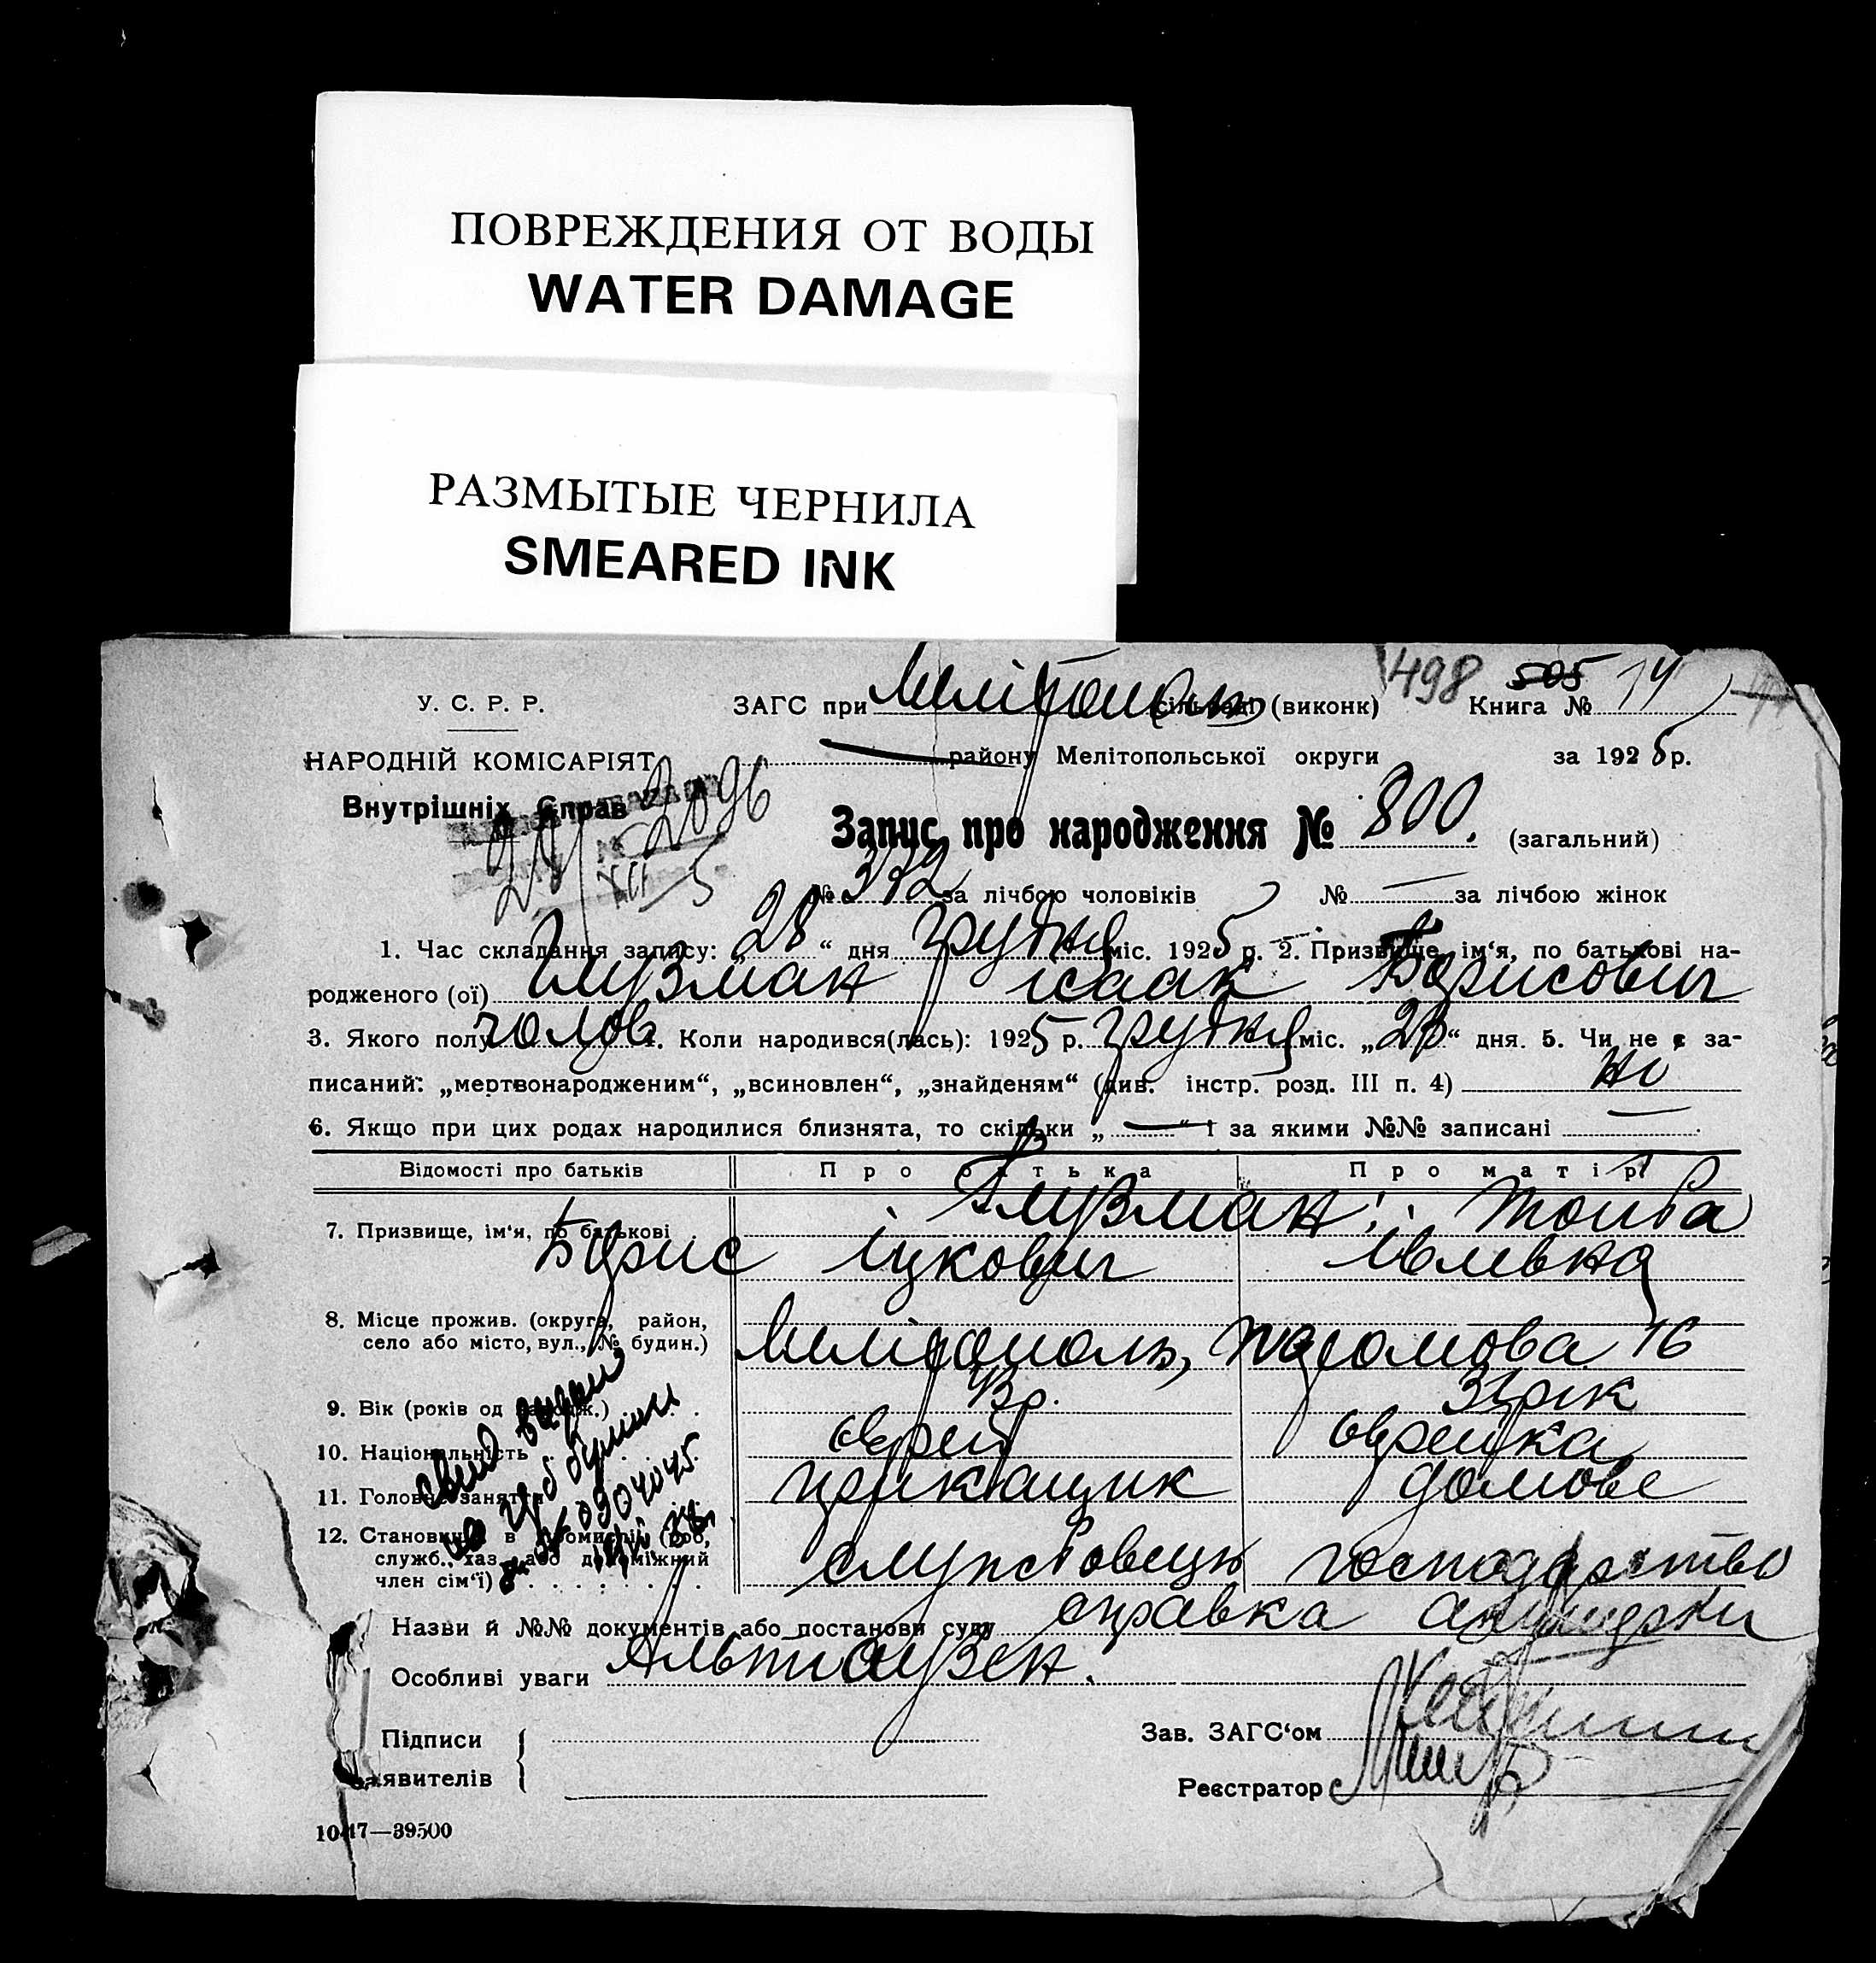 ПОВРЕЖДЕНИЯ ОТ ВОДЫ
WATER DAMAGE
РАЗМЫТЫЕ ЧЕРНИЛА
SMEARED INK
498 505 14
У. С. Р. Р. ЗАГС при сільраді (виконк) Книга №
НАРОДНІЙ КОМІСАРІЯТ району Мелітопольської округи за 1925 р.
Внутрішніх Справ 2096
Запис про народження № 800. (загальний)
XII 5
№ 382 за лічбою чоловіків № — за лічбою жінок
1. Час складання запису: „28“ дня грудня міс. 1925 р. 2. Призвище, ім‘я, по батькові на-
родженого (ої) Глузман Ісаак Борисович
3. Якого полу чолов 4. Коли народився(лась): 1925 р. грудня міс. „23“ дня. 5. Чи не є за-
писаний: „мертвонародженим“, „всиновлен“, „знайденям“ (див. інстр. розд. III п. 4) ні
6. Якщо при цих родах народилися близнята, то скільки „—“ і за якими №№ записані —
Відомості про батьків Про батька Про матір
7. Призвище, ім‘я, по батькові Глузман Тойба
Борис Іцкович
8. Місце прожив. (округа, район,
село або місто, вул., № будин.) Мелітополь, 16
9. Вік (років од народж.) 43 р. рік
10. Національність еврей еврейка
11. Головне заняття прикащик домове
12. Становище в промислі (роб,
служб., хаз. або допоміжний
член сім‘ї) службовець господарство
свид выдан
Назви й №№ документів або постанови суду справка акушерки
Особливі уваги Альтгаузен.
Підписи
заявителів
Зав. ЗАГС‘ом
Реєстратор
1047—39500